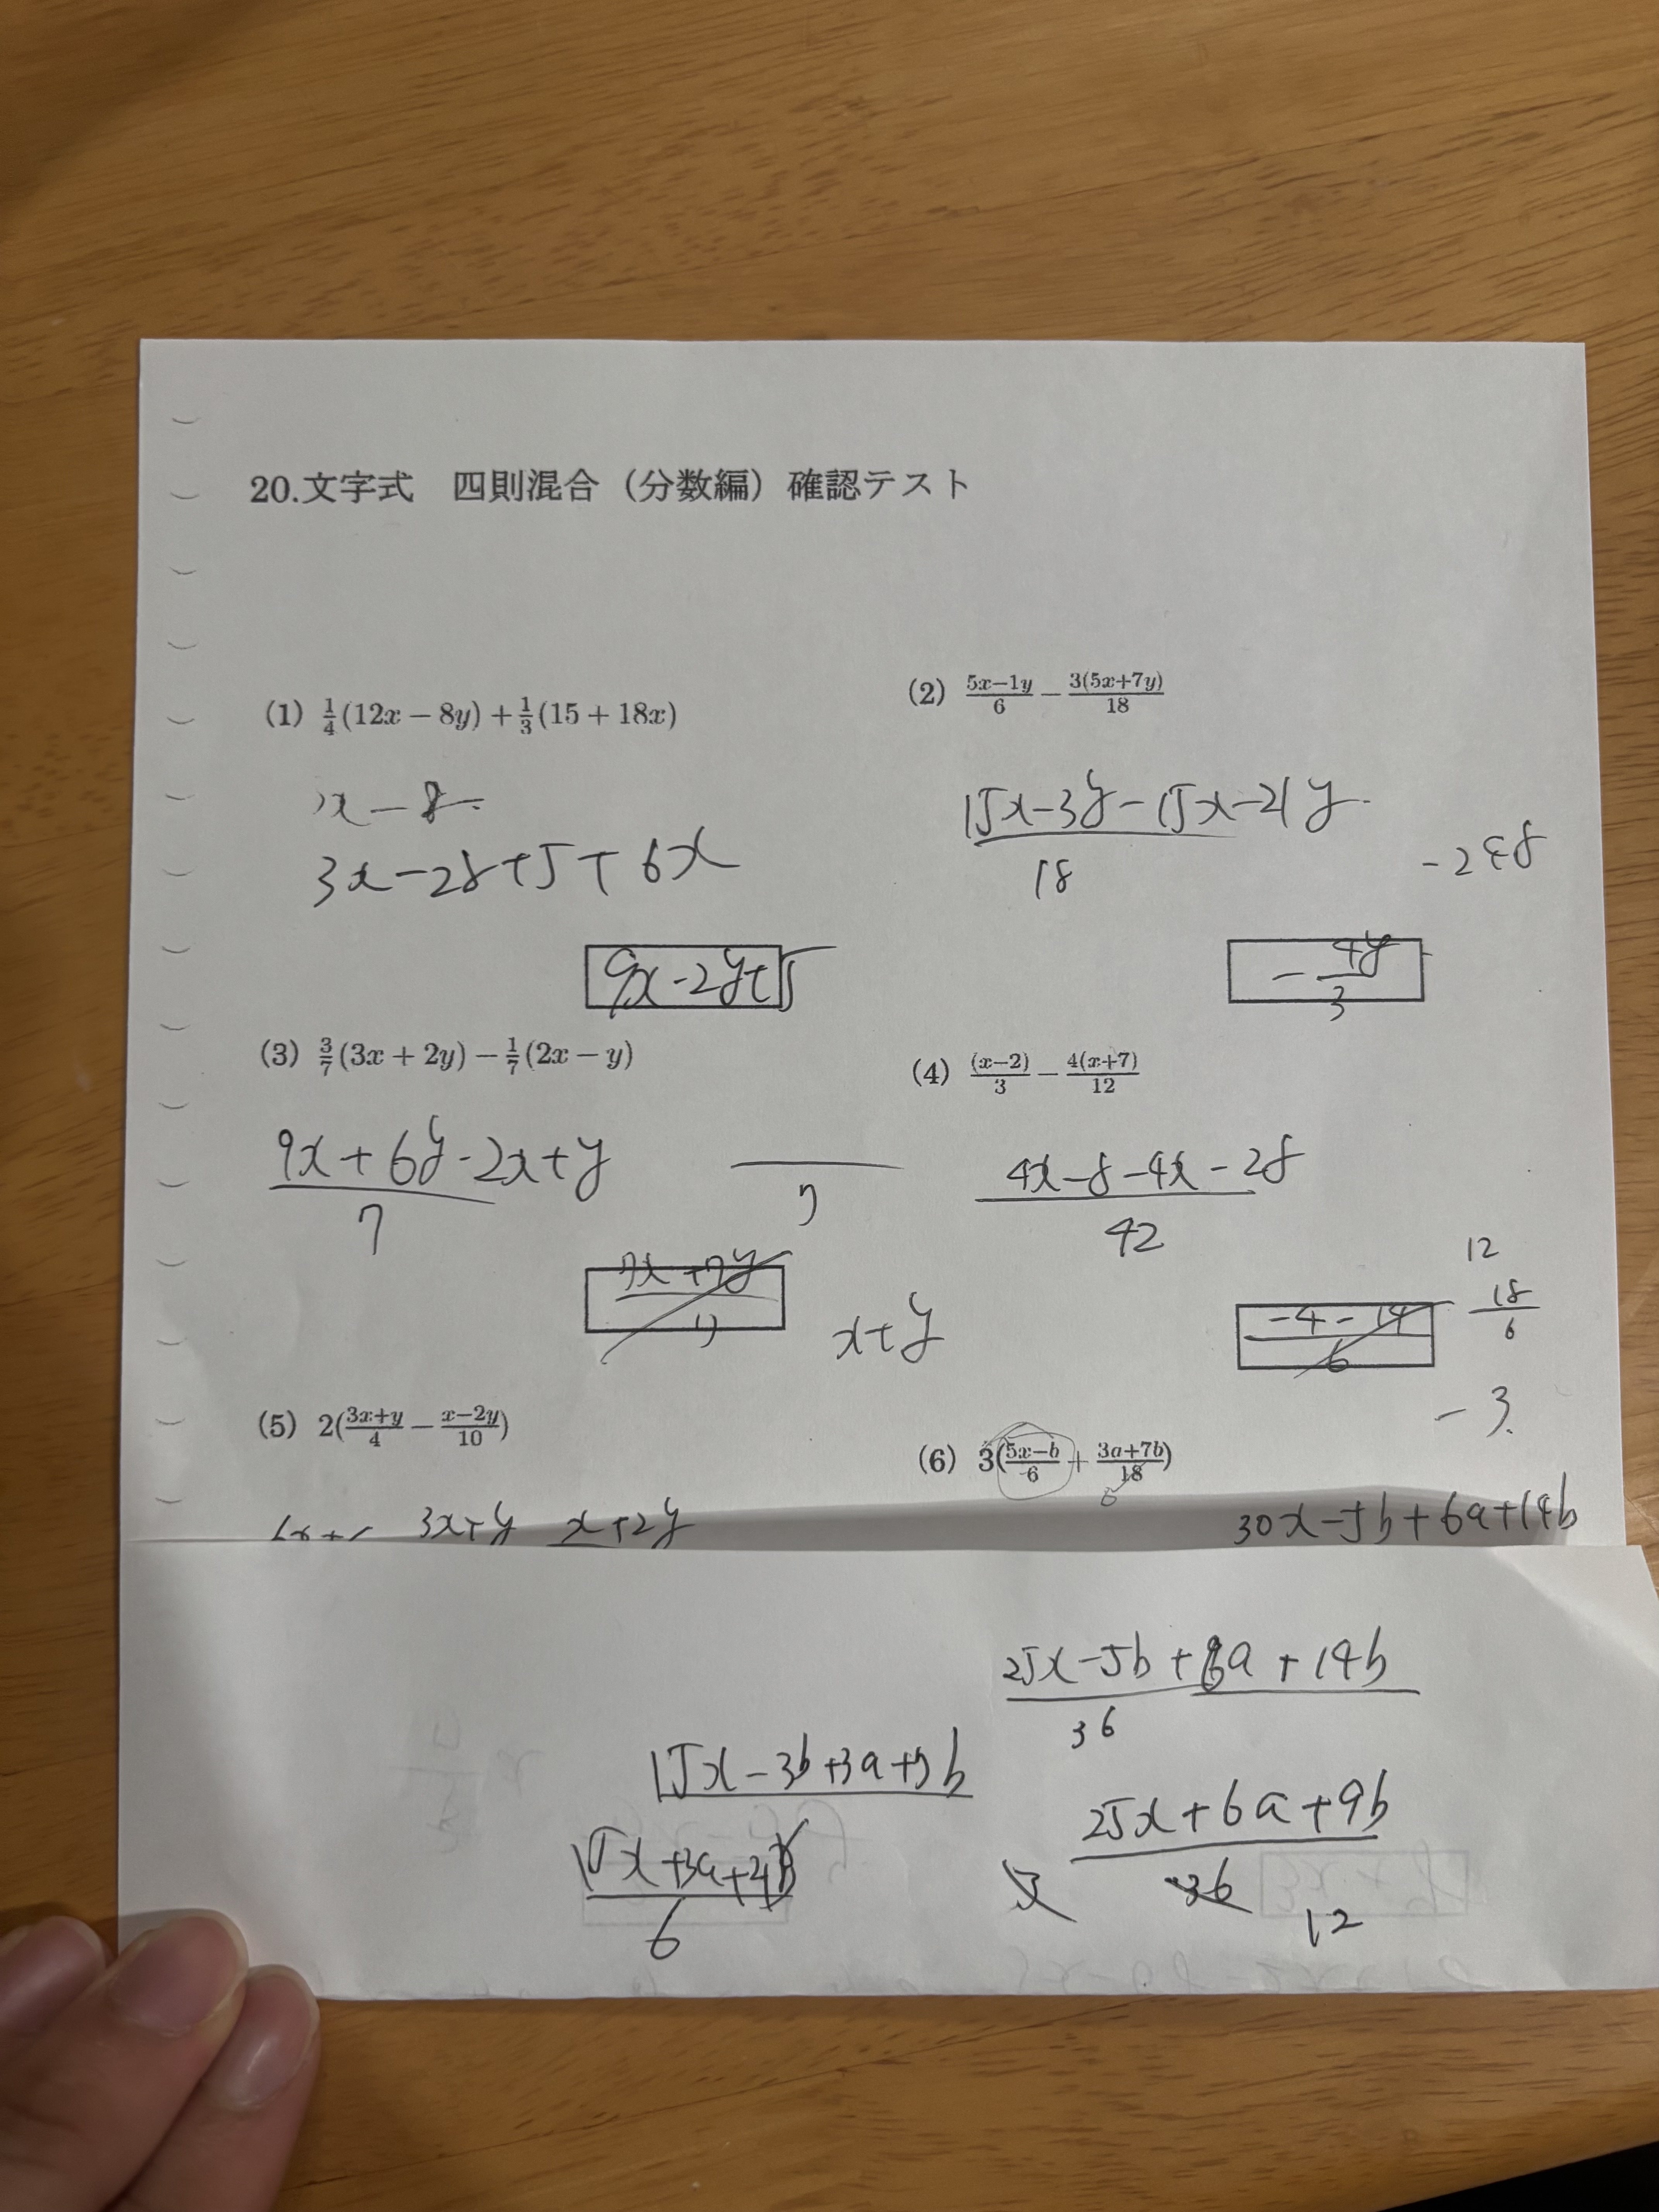 20.文字式　四則混合（分数編）確認テスト
(1) 1/4(12x − 8y) + 1/3(15 + 18x)
x − 8
3x−2y+5+6x
9x−2y+5
(2) (5x−1y)/6 − 3(5x+7y)/18
(15x−3y−15x−21y)/18
−4y/3
(3) 3/7(3x + 2y) − 1/7(2x − y)
(9x+6y−2x+y)/7
7
(7x+7y)/7
x+y
(4) (x−2)/3 − 4(x+7)/12
(4x−8−4x−28)/42
12
(−4−14)/6
18/6
−3
(5) 2((3x+y)/4 − (x−2y)/10)
3x+y x+2y
(6) 3((5x−b)/6 + (3a+7b)/18)
6
30x−5b+6a+14b
(25x−5b+6a+14b)/36
15x−3b+3a+7b
(15x+3a+4b)/6
(25x+6a+9b)/36
12